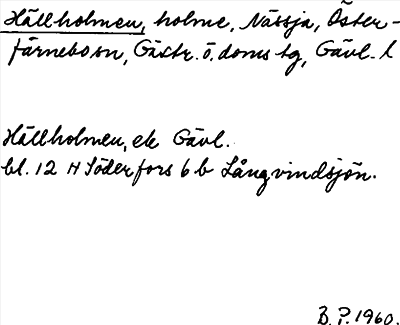 Hällholmen, holme, Nässja, Öster-
färnebo sn, Gästr. ö. doms tg, Gävl. l
Hällholmen, ek Gävl.
bl. 12 H Söderfors 6 b Långvindsjön.
B. P. 1960.